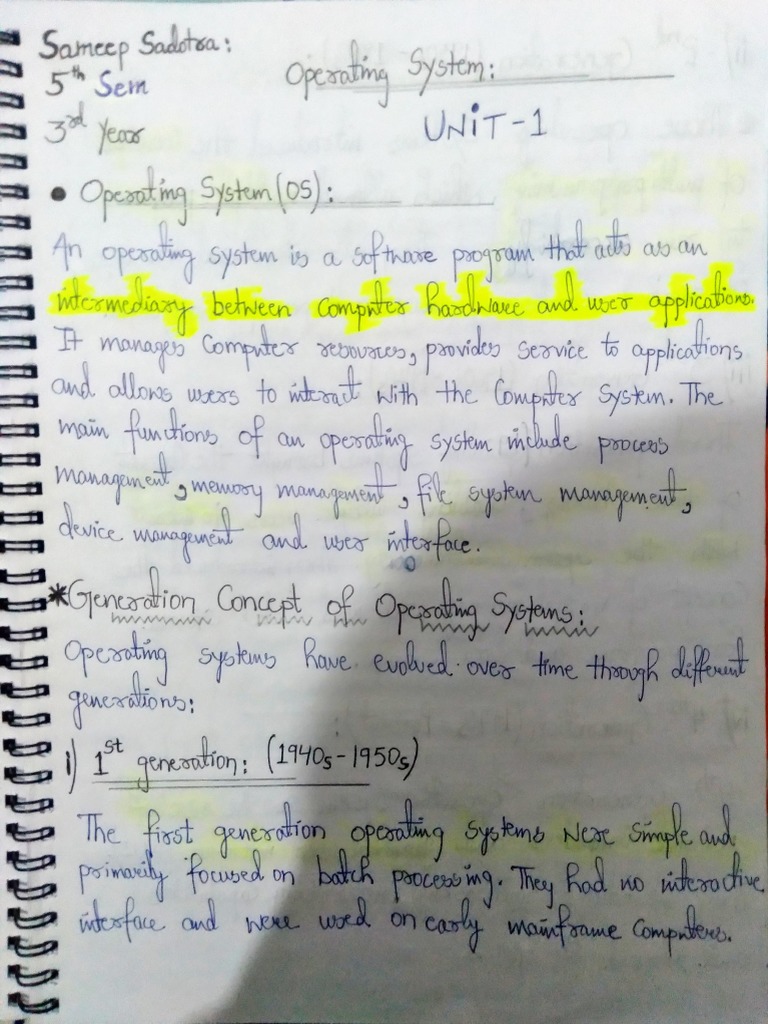 Sameep Sadotra:
5th Sem
Operating System:
3rd Year
UNIT-1
• Operating System (OS):
An operating system is a software program that acts as an
intermediary between computer hardware and user applications.
It manages Computer resources, provides service to applications
and allows users to interact with the Computer System. The
main functions of an operating system include process
management, memory management, file system management,
device management and user interface.
*Generation Concept of Operating Systems:
Operating systems have evolved over time through different
generations:
i) 1st generation: (1940s-1950s)
The first generation operating systems were simple and
primarily focused on batch processing. They had no interactive
interface and were used on early mainframe Computers.